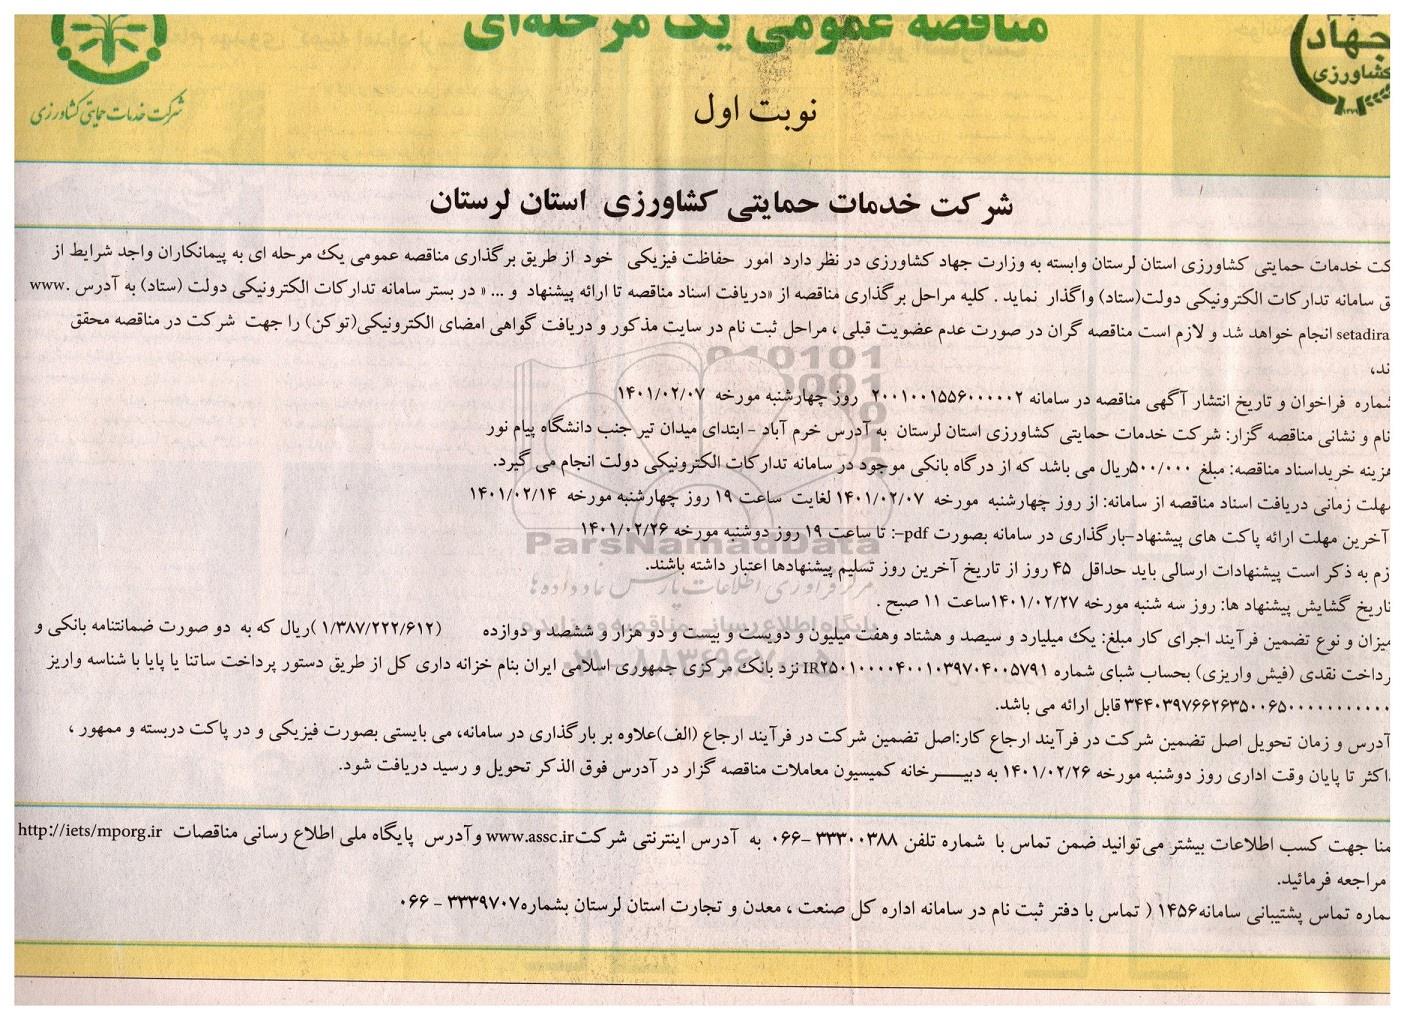 مناقصه عمومی یک مرحله‌ای
جهاد
کشاورزی
شرکت خدمات حمایتی کشاورزی
نوبت اول
شرکت خدمات حمایتی کشاورزی استان لرستان
خدمات حمایتی کشاورزی استان لرستان وابسته به وزارت جهاد کشاورزی در نظر دارد امور حفاظت فیزیکی خود از طریق برگذاری مناقصه عمومی یک مرحله ای به پیمانکاران واجد شرایط از
سامانه تدارکات الکترونیکی دولت(ستاد) واگذار نماید . کلیه مراحل برگذاری مناقصه از «دریافت اسناد مناقصه تا ارائه پیشنهاد و ... » در بستر سامانه تدارکات الکترونیکی دولت (ستاد) به آدرس .www
setadira انجام خواهد شد و لازم است مناقصه گران در صورت عدم عضویت قبلی ، مراحل ثبت نام در سایت مذکور و دریافت گواهی امضای الکترونیکی(توکن) را جهت شرکت در مناقصه محقق
ند،
شماره فراخوان و تاریخ انتشار آگهی مناقصه در سامانه ۲۰۰۱۰۰۱۵۵۶۰۰۰۰۰۲ روز چهارشنبه مورخه ۱۴۰۱/۰۲/۰۷
نام و نشانی مناقصه گزار: شرکت خدمات حمایتی کشاورزی استان لرستان به آدرس خرم آباد - ابتدای میدان تیر جنب دانشگاه پیام نور
هزینه خریداسناد مناقصه: مبلغ ۵۰۰/۰۰۰ریال می باشد که از درگاه بانکی موجود در سامانه تدارکات الکترونیکی دولت انجام می گیرد.
مهلت زمانی دریافت اسناد مناقصه از سامانه: از روز چهارشنبه مورخه ۱۴۰۱/۰۲/۰۷ لغایت ساعت ۱۹ روز چهارشنبه مورخه ۱۴۰۱/۰۲/۱۴
آخرین مهلت ارائه پاکت های پیشنهاد-بارگذاری در سامانه بصورت pdf-: تا ساعت ۱۹ روز دوشنبه مورخه ۱۴۰۱/۰۲/۲۶
ازم به ذکر است پیشنهادات ارسالی باید حداقل ۴۵ روز از تاریخ آخرین روز تسلیم پیشنهادها اعتبار داشته باشند.
تاریخ گشایش پیشنهاد ها: روز سه شنبه مورخه ۱۴۰۱/۰۲/۲۷ساعت ۱۱ صبح .
میزان و نوع تضمین فرآیند اجرای کار مبلغ: یک میلیارد و سیصد و هشتاد وهفت میلیون و دویست و بیست و دو هزار و ششصد و دوازده (۱/۳۸۷/۲۲۲/۶۱۲ )ریال که به دو صورت ضمانتنامه بانکی و
رداخت نقدی (فیش واریزی) بحساب شبای شماره IR۲۵۰۱۰۰۰۰۴۰۰۱۰۳۹۷۰۴۰۰۵۷۹۱ نزد بانک مرکزی جمهوری اسلامی ایران بنام خزانه داری کل از طریق دستور پرداخت ساتنا یا پایا با شناسه واریز
۳۴۴۰۳۹۷۶۶۲۶۳۵۰۰۶۵۰۰۰۰۰۰۰۰۰۰۰۰ قابل ارائه می باشد.
آدرس و زمان تحویل اصل تضمین شرکت در فرآیند ارجاع کار:اصل تضمین شرکت در فرآیند ارجاع (الف)علاوه بر بارگذاری در سامانه، می بایستی بصورت فیزیکی و در پاکت دربسته و ممهور ،
داکثر تا پایان وقت اداری روز دوشنبه مورخه ۱۴۰۱/۰۲/۲۶ به دبیــــرخانه کمیسیون معاملات مناقصه گزار در آدرس فوق الذکر تحویل و رسید دریافت شود.
منا جهت کسب اطلاعات بیشتر می‌توانید ضمن تماس با شماره تلفن ۳۳۳۰۰۳۸۸ -۰۶۶ به آدرس اینترنتی شرکتwww.assc.ir وآدرس پایگاه ملی اطلاع رسانی مناقصات http://iets/mporg.ir
مراجعه فرمائید.
شماره تماس پشتیبانی سامانه۱۴۵۶ ( تماس با دفتر ثبت نام در سامانه اداره کل صنعت ، معدن و تجارت استان لرستان بشماره۳۳۳۹۷۰۷ - ۰۶۶
ParsNamadData
مرکز فرآوری اطلاعات پارس نماد داده ها
پایگاه اطلاع رسانی مناقصه و مزایده